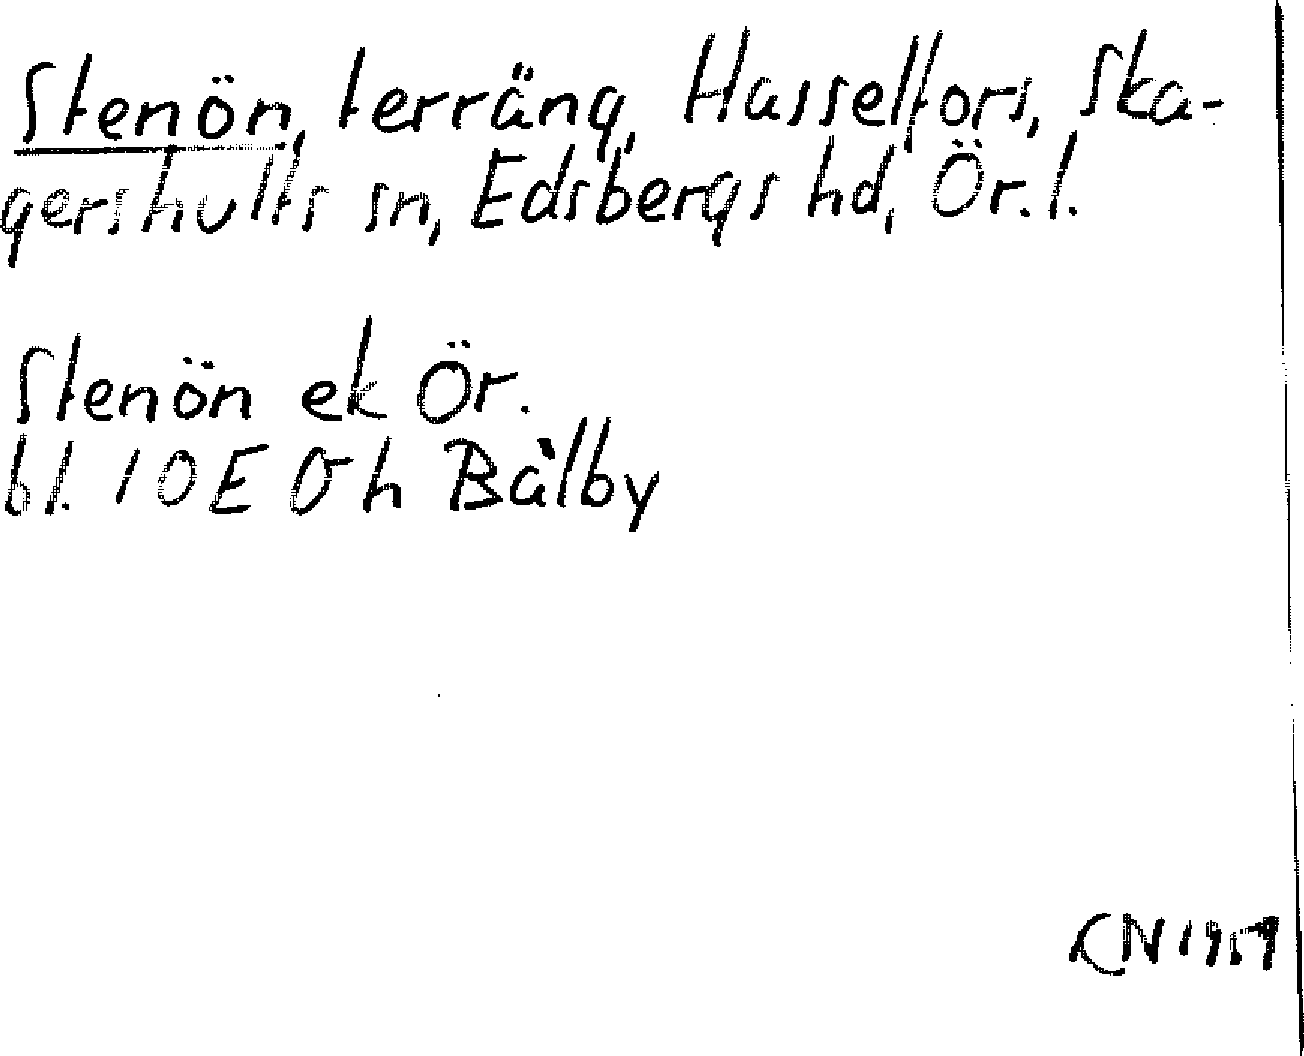 Stenön, terräng, Hasselfors, Ska-
gershults sn, Edsbergs hd, Ör. l.
Stenön ek Ör.
bl. 10E 0h Bålby
CN 1959